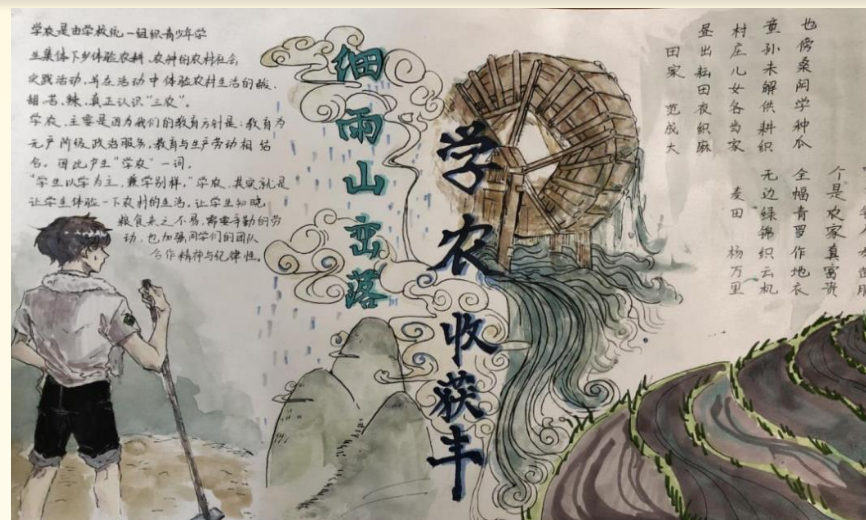 学农是由学校统一组织青少年学
生集体下乡体验农耕、农种的农村社会
实践活动,并在活动中体验农村生活的酸、
甜、苦、辣、真正认识"三农"。
学农,主要是因为我们的教育方针是:教育为
无产阶级政治服务,教育与生产劳动相结
合。因此产生"学农"一词。
"学生以学为主,兼学别样,"学农,其实就是
让学生体验一下农村的生活,让学生知晓
粮食来之不易,需要辛勤的劳
动,也加强同学们的团队
合作精神与纪律性。
细雨山峦落
学农收获丰
田家 范成大
昼出耘田夜织麻
村庄儿女各当家
童孙未解供耕织
也傍桑阴学种瓜
麦田 杨万里
无边绿锦织云机
全幅青罗作地衣
个是农家真富贵